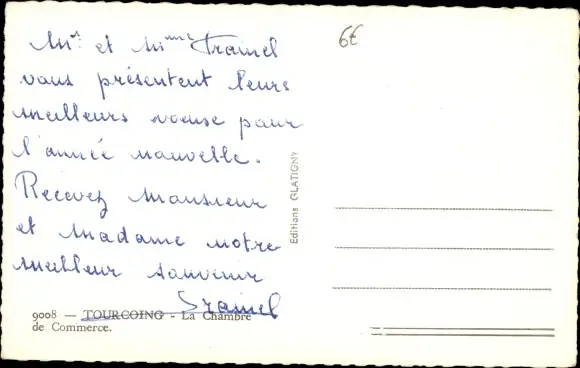 Mr. et Mme Trainel
vous présentent leurs
meilleurs voeuse pour
l'année nouvelle.
Recevez Monsieur
et Madame notre
meilleur souvenir
Trainel
9008 — TOURCOING - La Chambre
de Commerce.
Editions GLATIGNY
6€